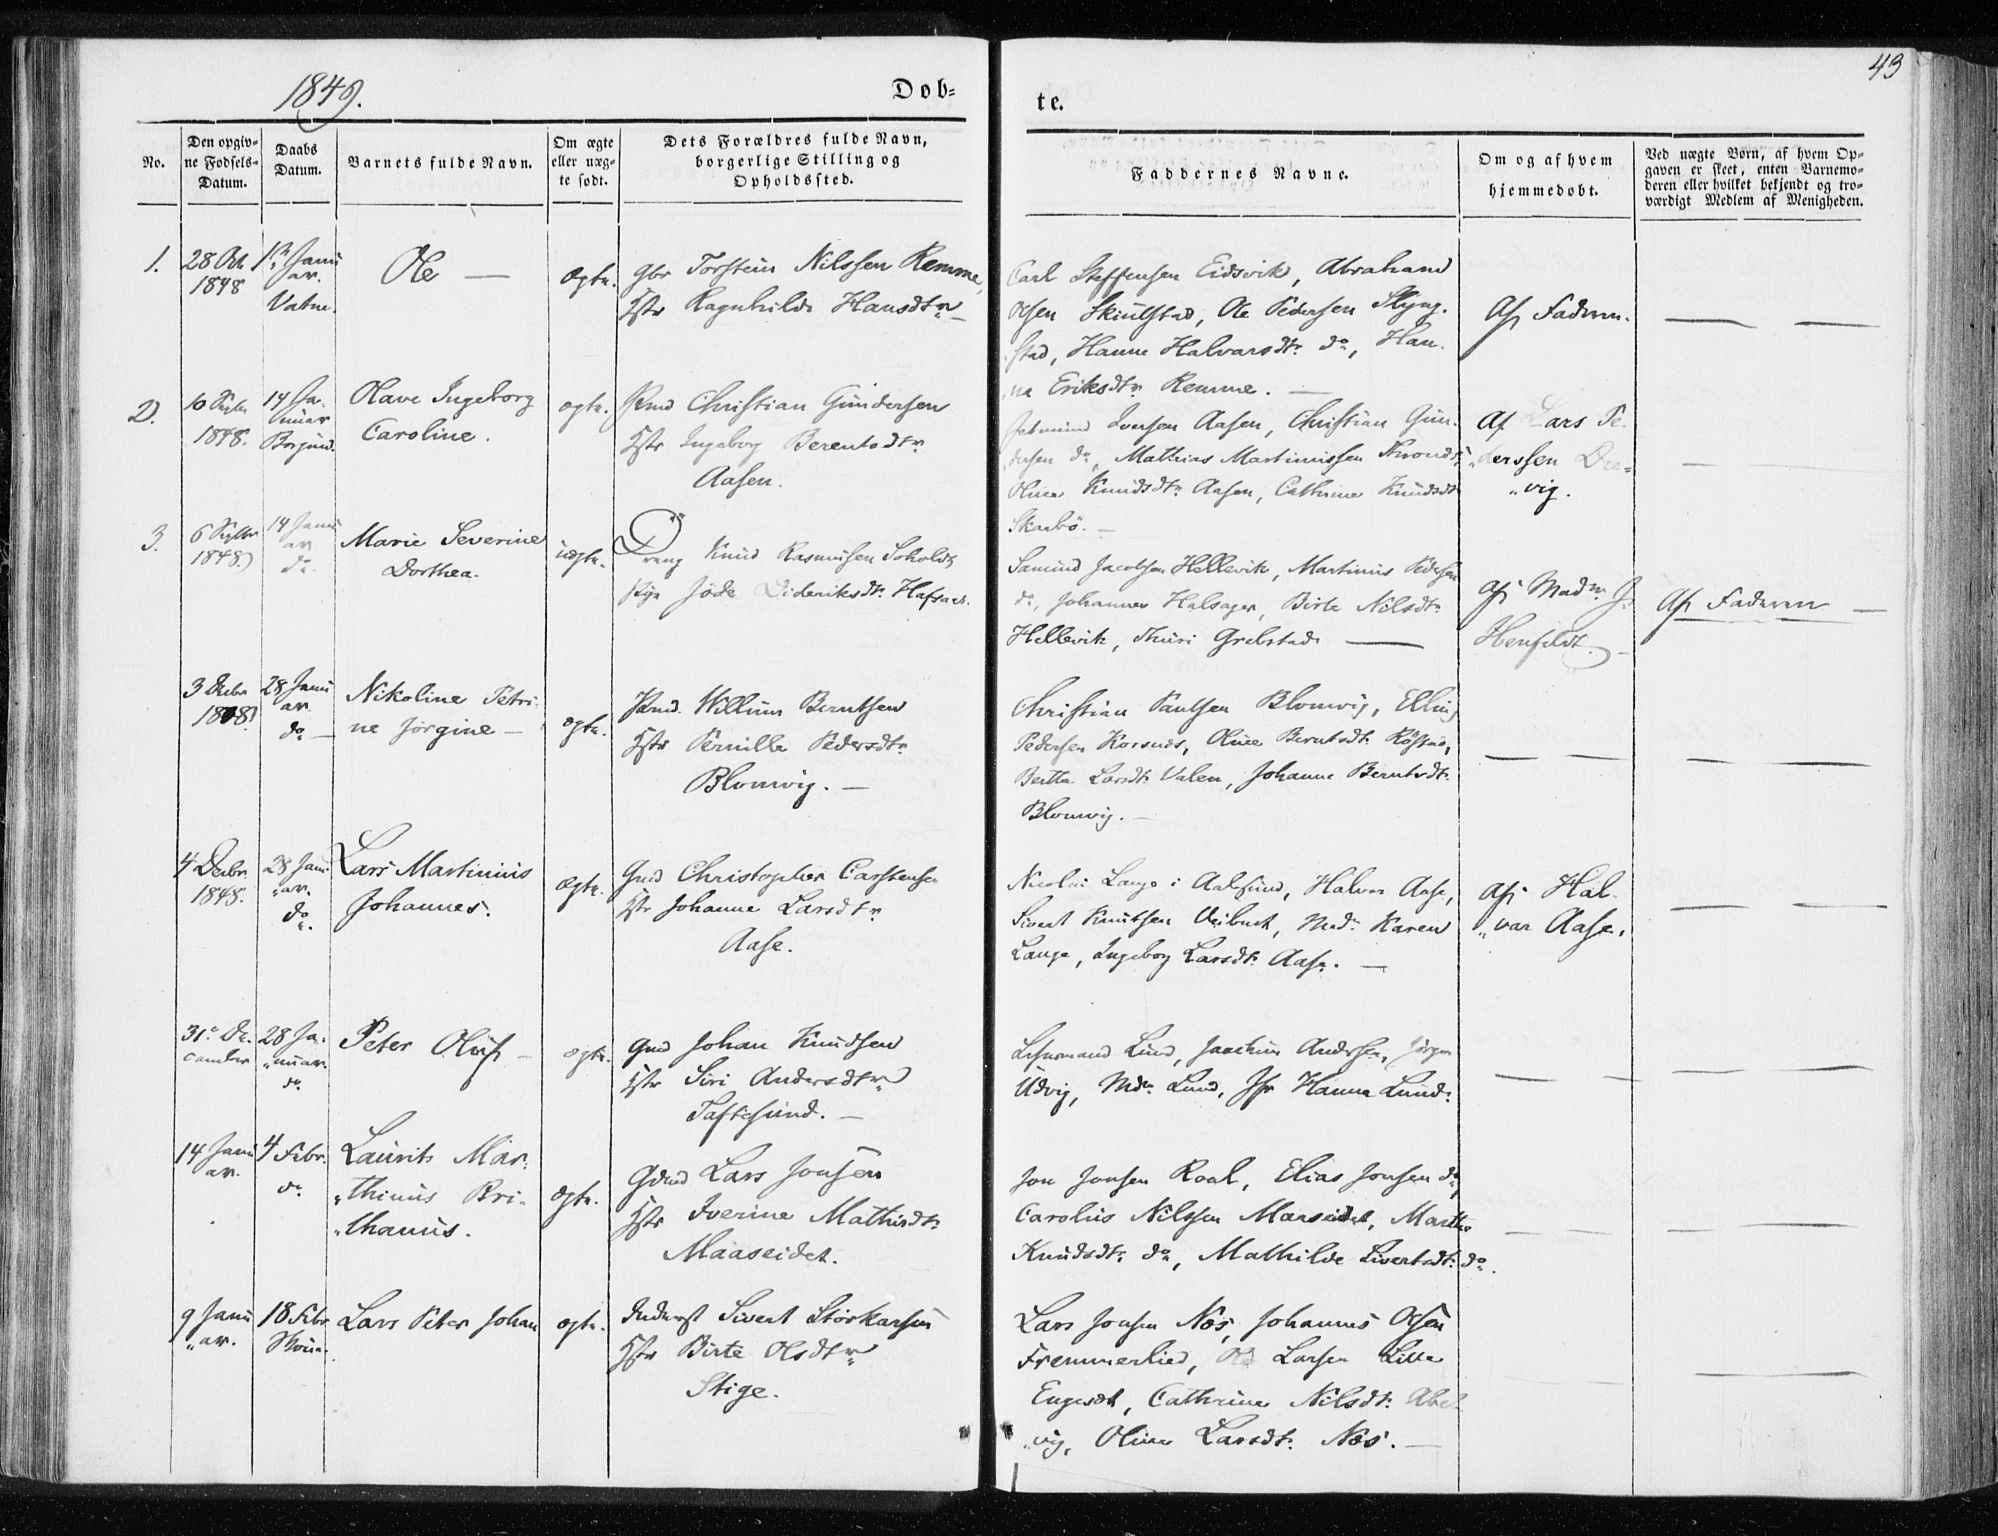 1849.
Døb-
te.
43
No.
Den opgiv-
ne Fødsels-
Datum.
Daabs
Datum.
Barnets fulde Navn.
Om ægte
eller uæg-
te født.
Dets Forældres fulde Navn,
borgerlige Stilling og
Opholdssted.
Faddernes Navne.
Om og af hvem
hjemmedøbt.
Ved uægte Børn, af hvem Op-
gaven er skeet, enten Barnemo-
deren eller hvilket bekjendt og tro-
værdigt Medlem af Menigheden.
1.
28 Oct
1848
1ste Janu
ar.
Vatne.
Ole —
ægte.
Gbr Torstein Nilssen Remme,
Hstr Ragnhilde Hansdtr
Carl Steffensen Eidsvik, Abraham
Olsen Skiutstad, Ole Pedersen Slyng-
stad, Hanne Halvarsdtr do, Han-
na Eriksdtr Remme. —
Af Faderen.
2.
10
1848.
14 Ja-
nuar
Borgund.
Olave Ingeborg
Caroline.
ægte.
Christian Gundersen
Hstr Ingeborg Berentsdtr
Aasen.
Iversen Aasen, Christian Gun-
dersen do, Mathias Martinussen
Oline Knudsdtr Aasen, Cathrine Knudsdtr
Skarbö. —
Af Lars Pe-
derssen Dre-
vig.
3.
6 Septbr
1848.
14 Janu
ar
do.
Marie Severine
Dorthea.
uægte.
Dreng Knud Rasmussen Soholdt
Pige Jøde Dideriksdtr
Samund Jacobsen Hellevik, Martinus Pedersen
do, Johannes Halsager, Birte Nilsdtr
Hellevik, Thuri Grebstad —
Af Madm J.
Henfeldt.
Af Faderen —
3 Decbr
1848
28 Janu
ar
do —
Nikoline Petri-
ne Jørgine —
ægte.
Willum Berntsen
Hstr Pernille Pedersdtr
Blomvig. —
Christian Paulsen Blomvig, Elling
Pedersen Korsnes, Oline Berntsdtr Røstad,
Berthe Larsdtr Valen, Johanne Berntsdtr
Blomvig. —
4 Decbr.
1848.
28 Janu
ar.
do.
Lars Martinius
Johannes.
ægte.
Gmd Christopher Carstensen
Hstr Johanne Larsdtr
Aase.
Nicolai Lange i Aalesund, Halvar Aase,
Sivert Knutsen Veibust, Mad. Karen
Lange, Ingeborg Larsdtr Aase. —
Af Hal-
var Aase.
31te De-
cember
28 Ja-
nuar.
do
Peter Oluf —
ægte.
Gmd Johan Knudsen
Hstr Siri Andersdtr
Taftesund. —
Lensmand Lund, Joachim Andersen, Jørgen
Udvig, Mdm Lund, Jfr Hanna Lund.
14 Janu
ar.
4 Febr.
do
Laurits Mar-
thinus Bri-
thanus.
ægte.
Gdmd Lars Jonsen
Hstr Iverine Mathisdtr
Maaseidet.
Jon Jonsen Roal, Elias Jonsen do,
Carolus Nilssen Maaseidet, Marthe
Knudsdtr do, Mathilde Sivertsdtr do.
9 Janu
ar.
18 Febr
Skoue.
Lars Peter Johan
ægte.
Inderst Sivert Storkarsen
Hstr Birte Olsdtr
Stige.
Lars Jonsen Nos, Johannes Olsen
Fremmerlied, Ole Larsen Lille
Engeset, Cathrine Nilsdtr Abel-
vig, Oline Larsdtr Nos. —